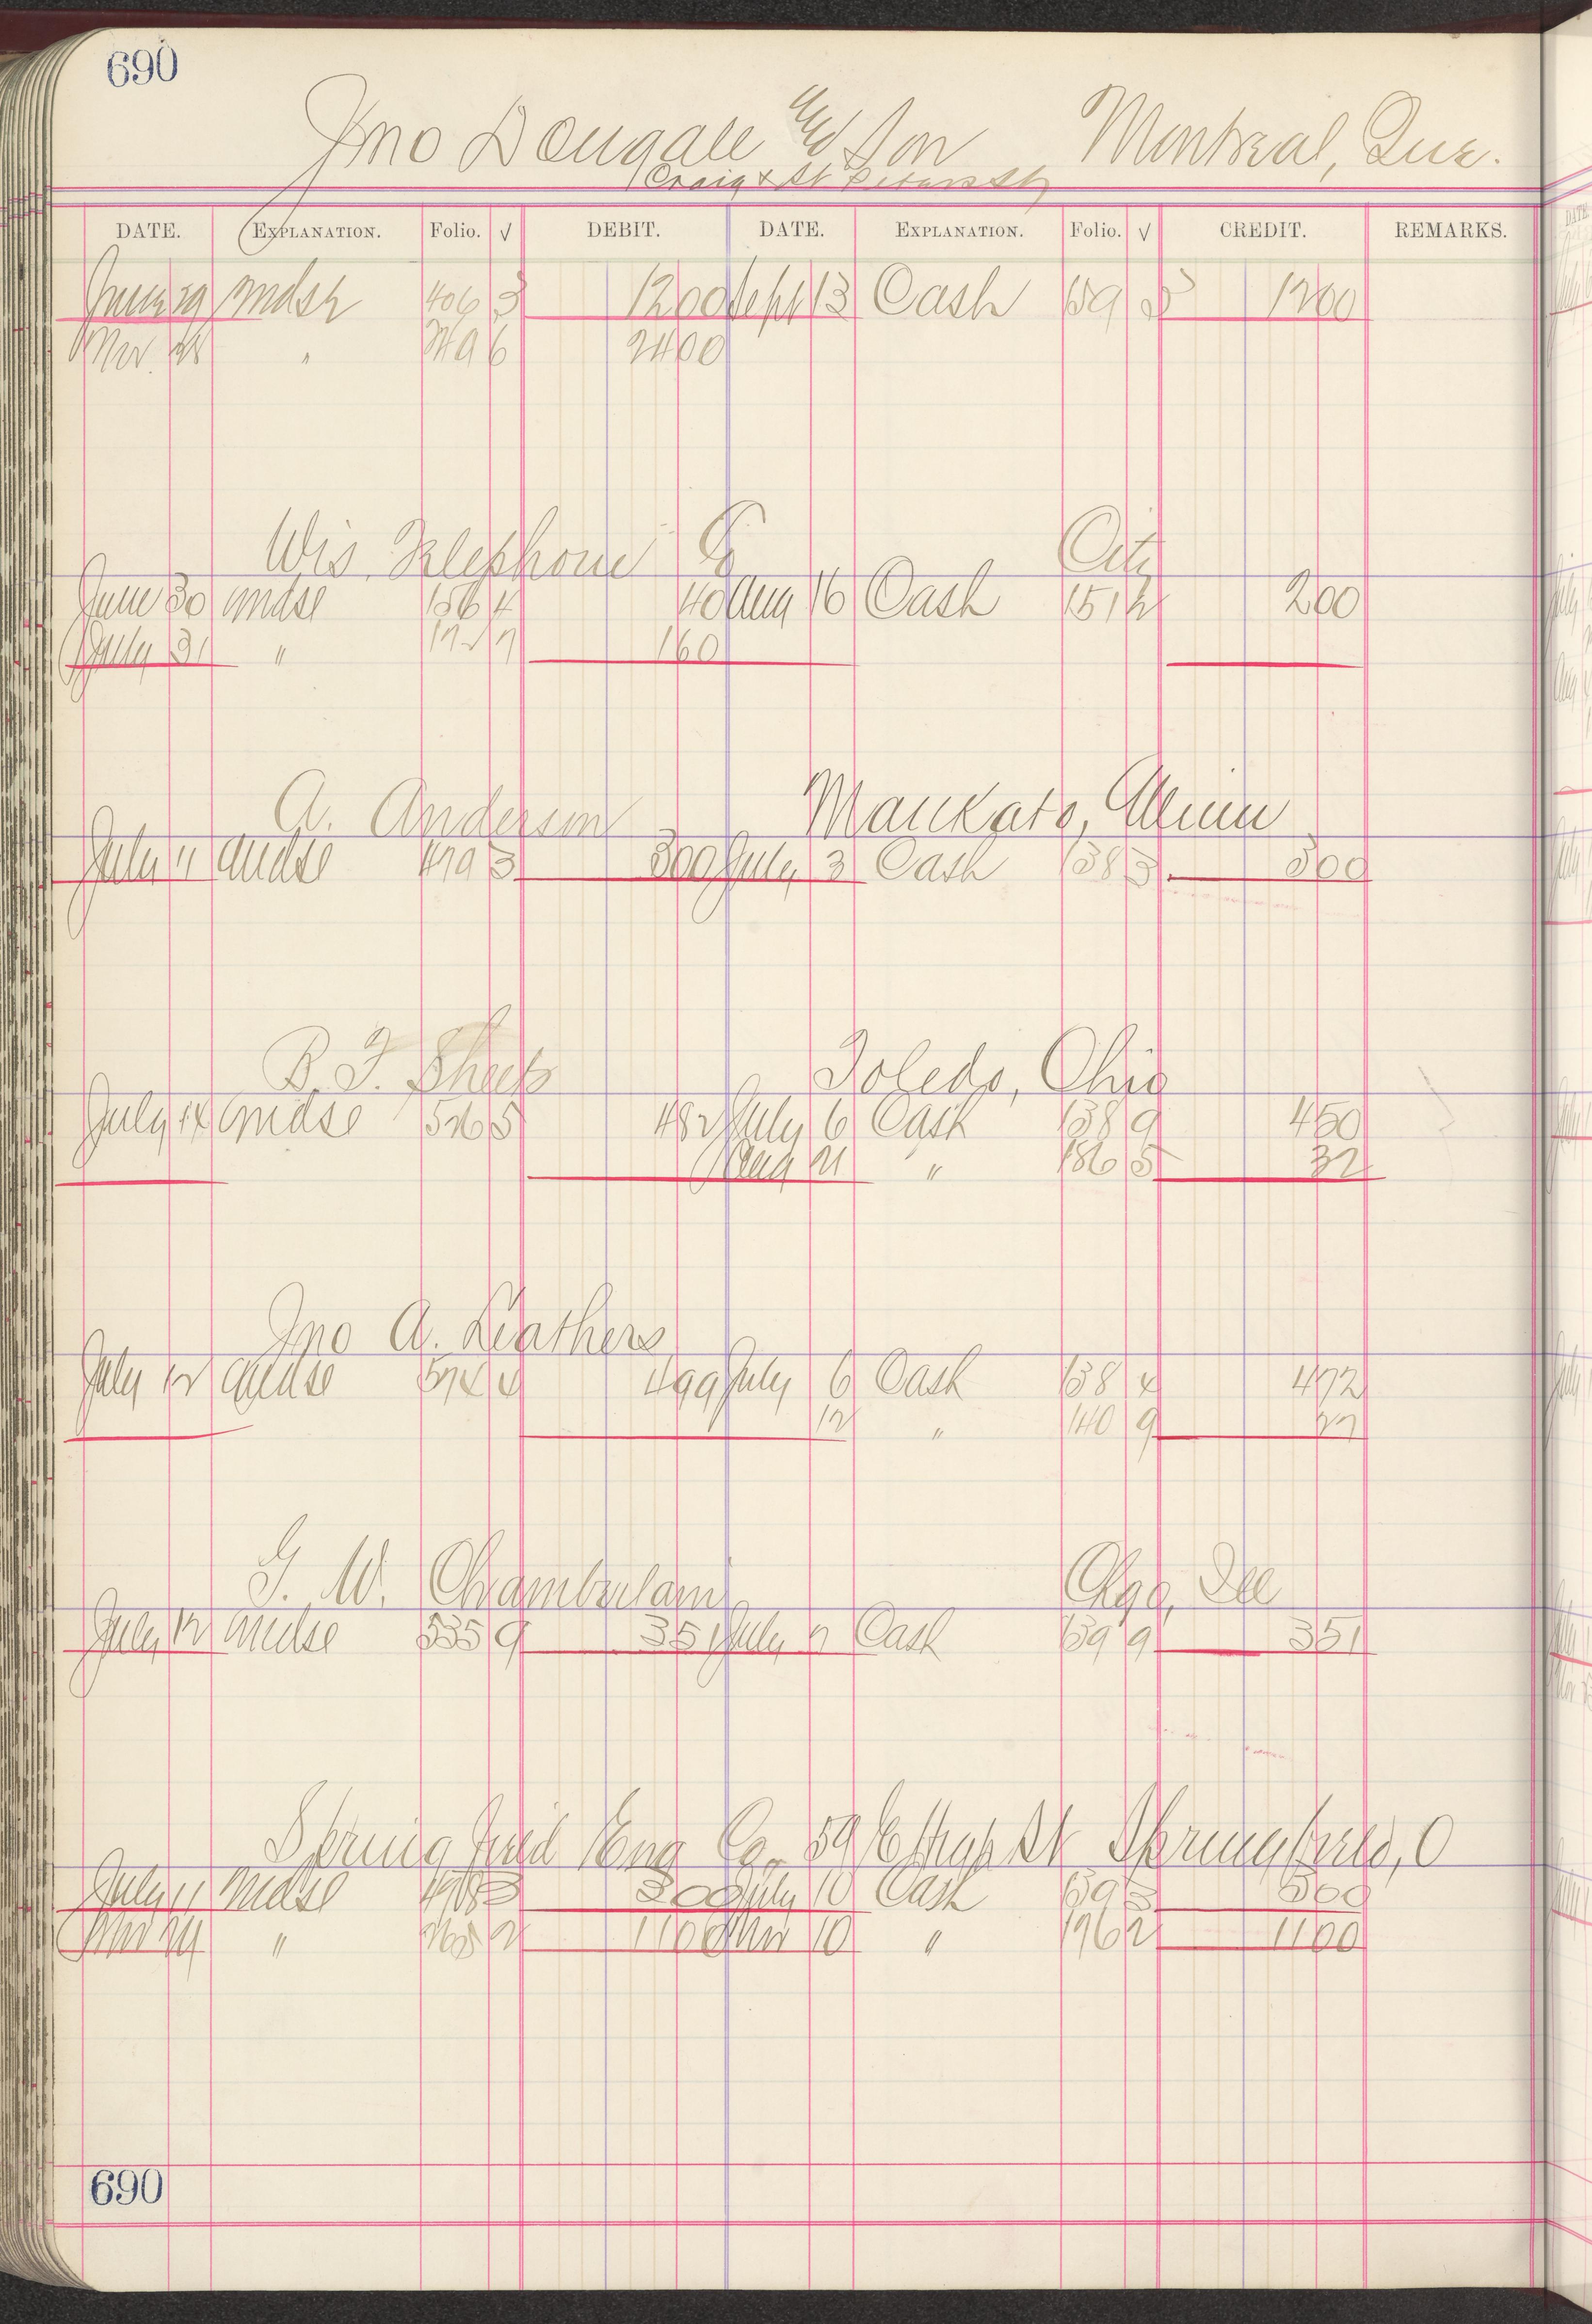 690
Jno Dougall and Son Montreal, Que.
Craig & St Peters St
DATE. EXPLANATION. Folio. √ DEBIT. DATE. EXPLANATION. Folio. √ CREDIT. REMARKS.
June 29 Mdse 406 3 1200 Sept 13 Cash 159 3 1200
Nov. 28 " 6 2400
Wis. Telephone Co City
June 30 Mdse 156 4 40 Aug 16 Cash 151 2 200
July 31 " 7 160
A. Anderson Mankato, Minn
July 11 Mdse 479 3 300 July 3 Cash 138 3 300
B. F. Sheets Toledo, Ohio
July 14 Mdse 526 5 482 July 6 Cash 138 9 450
Aug 21 " 186 5 32
Jno A. Leathers
July 12 Mdse 524 4 499 July 6 Cash 138 4 472
12 " 140 9 27
G. W. Chamberlain Chgo, Ill
July 12 Mdse 535 9 351 July 7 Cash 139 9 351
Springfield Eng Co. 59 E High St Springfield, O
July 11 Mdse 3 300 July 10 Cash 139 3 300
Nov 24 " 2 1100 Nov 10 " 196 2 1100
690